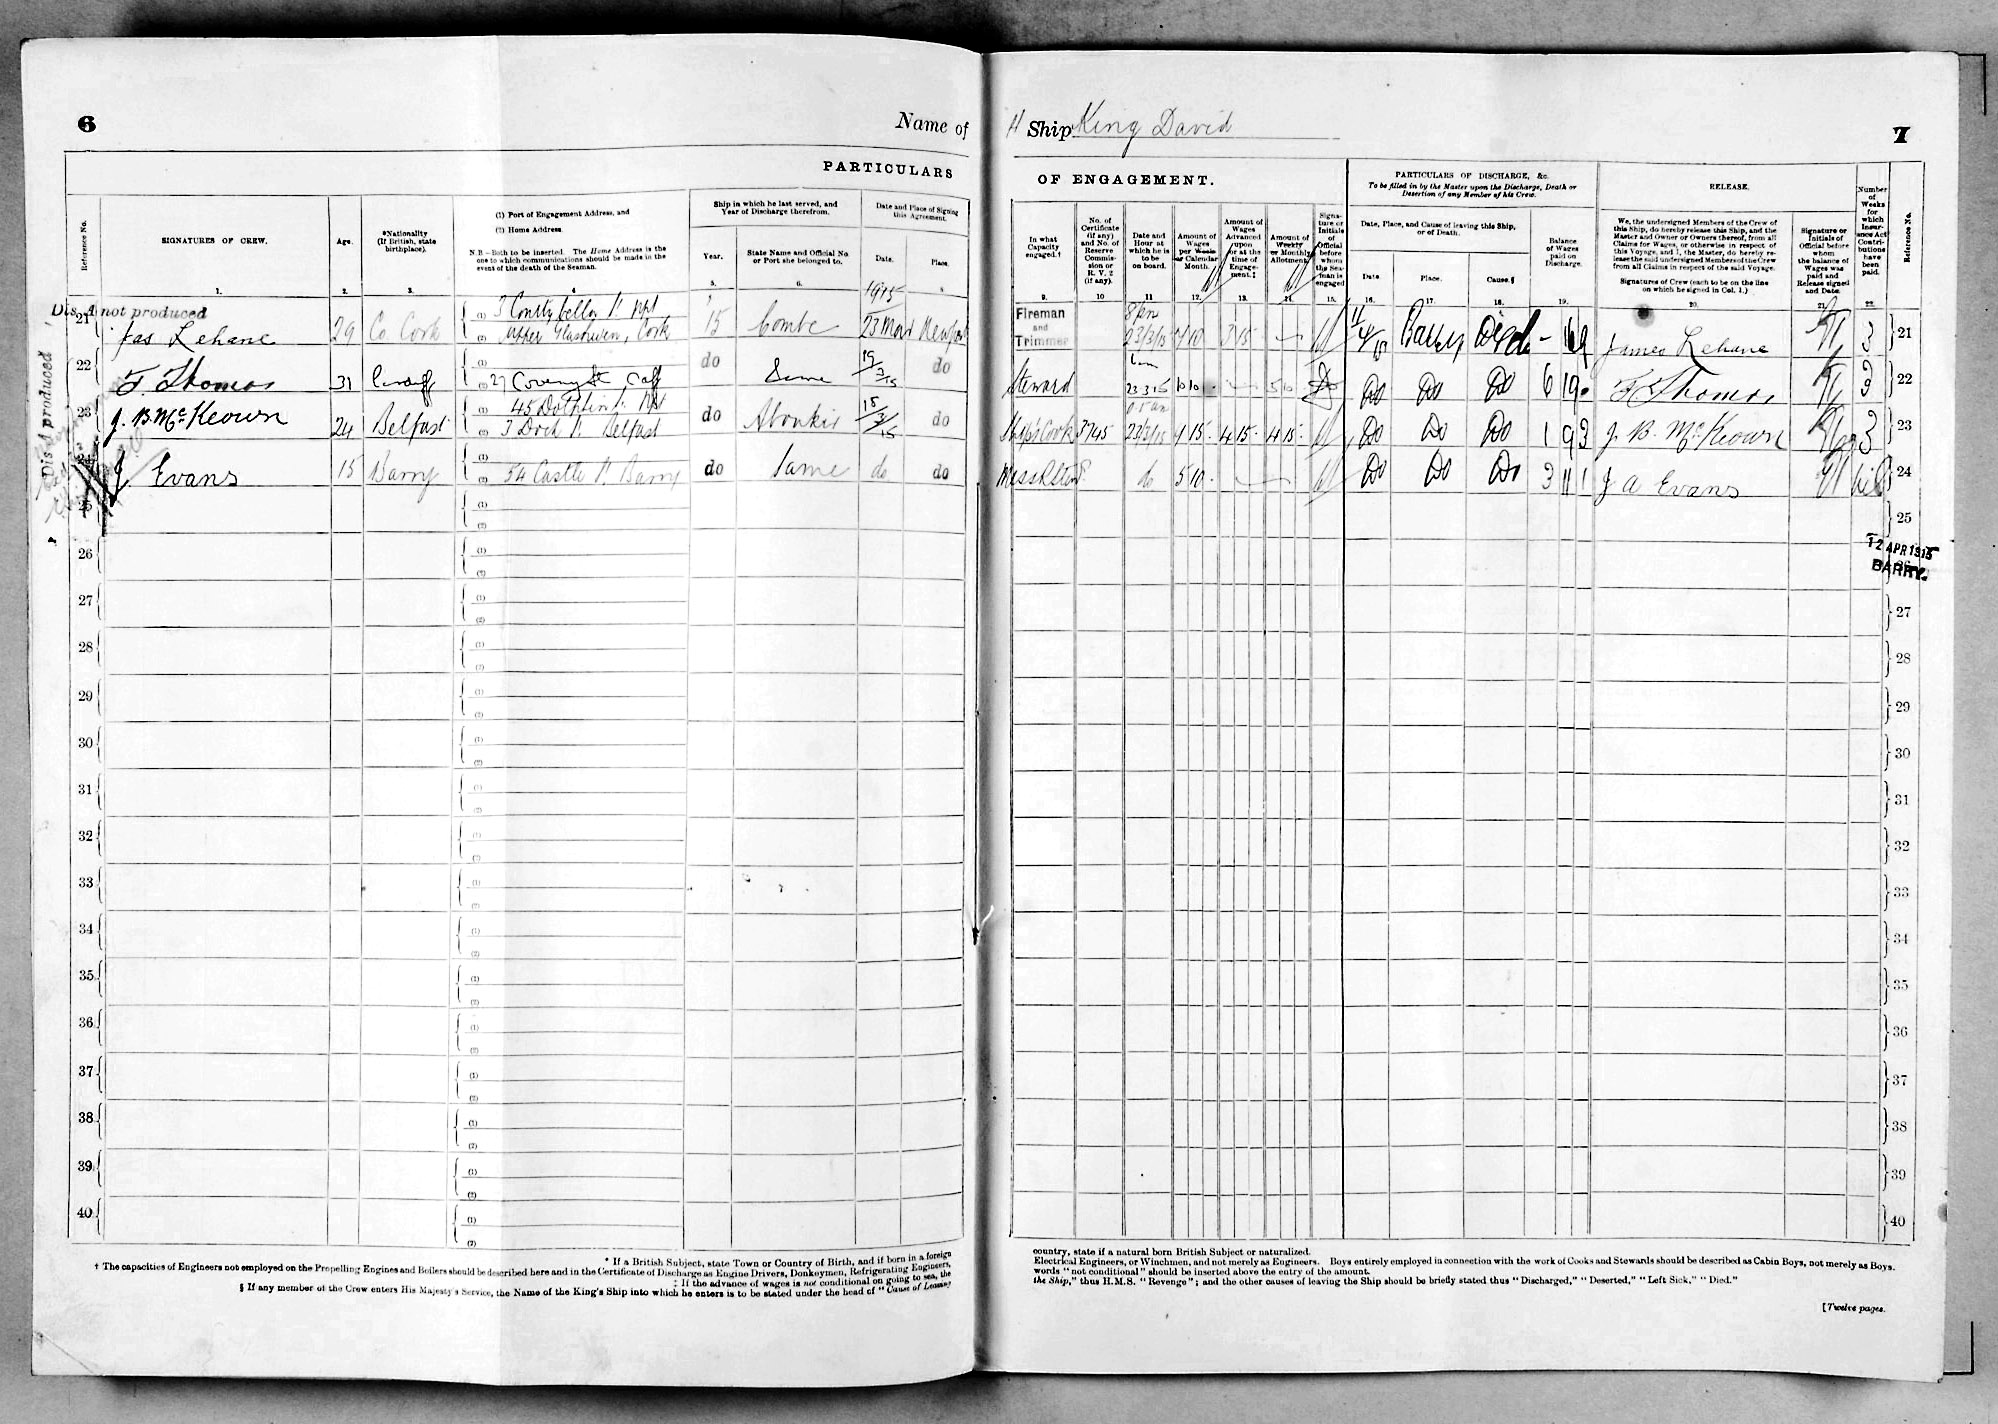 6
Name of
PARTICULARS
Reference No.
SIGNATURES OF CREW.
Age.
*Nationality
(If British, state
birthplace).
(1) Port of Engagement Address, and
(2) Home Address.
N.B.—Both to be inserted. The Home Address is the
one to which communications should be made in the
event of the death of the Seaman.
Ship in which he last served, and
Year of Discharge therefrom.
Year.
State Name and Official No.
or Port she belonged to.
Date and Place of Signing
this Agreement.
Date.
Place.
1. 2. 3. 4 5. 6. 8
1915
Dis. A not produced
Dis A produced
21 Jas Lehane 29 Co Cork
Cork 15 Combe 23 Mar Newport
22 T. Thomas 31 Cardiff 27 do Same 19/3/15 do
23 J. B. McKeown 24 Belfast (1) 45 Dolphin
(2) 3 Dock St. Belfast do Aboukir do
24 J Evans 15 Barry 54 Castle St. Barry do Same do do
25
26
27
28
29
30
31
32
33
34
35
36
37
38
39
40
* If a British Subject, state Town or Country of Birth, and if born in a foreign
† The capacities of Engineers not employed on the Propelling Engines and Boilers should be described here and in the Certificate of Discharge as Engine Drivers, Donkeymen, Refrigerating Engineers,
‡ If the advance of wages is not conditional on going to sea, the
§ If any member of the Crew enters His Majesty's Service, the Name of the King's Ship into which he enters is to be stated under the head of "Cause of Leaving
Ship King David
7
OF ENGAGEMENT.
PARTICULARS OF DISCHARGE, &c.
To be filled in by the Master upon the Discharge, Death or
Desertion of any Member of his Crew.
RELEASE.
In what
Capacity
engaged.†
No. of
Certificate
(if any)
and No. of
Reserve
Commis-
sion or
R. V. 2
(if any).
Date and
Hour at
which he is
to be
on board.
Amount of
Wages
per Week
or Calendar
Month.
Amount of
Wages
Advanced
upon
or at the
time of
Engage-
ment.‡
Amount of
Weekly
or Monthly
Allotment.
Signa-
ture or
Initials
of
Official
before
whom
the Sea-
man is
engaged
Date, Place, and Cause of leaving this Ship,
or of Death.
Date.
Place.
Cause.§
Balance
of Wages
paid on
Discharge.
We, the undersigned Members of the Crew of
this Ship, do hereby release this Ship, and the
Master and Owner or Owners thereof, from all
Claims for Wages, or otherwise in respect of
this Voyage, and I, the Master, do hereby re-
lease the said undersigned Members of the Crew
from all Claims in respect of the said Voyage.
Signatures of Crew (each to be on the line
on which he signed in Col. 1.)
Signature or
Initials of
Official before
whom
the balance of
Wages was
paid and
Release signed
and Date.
Number
of
Weeks
for
which
Insur-
ance Act
Contri-
butions
have
been
paid.
Reference No.
9. 10 11 12. 13. 14. 15. 16. 17. 18. 19. 20. 21. 22.
Fireman
and
Trimmer 23/3/15 Barry James Lehane 3 21
Steward 23 3 15 10 10 Do Do Do 6 19 T. Thomas 3 22
Ship's Cook 3745 23/3/15 4 15 4 15 Do Do Do 1 9 3 J. B. McKeown 3 23
do 5 10 Do Do Do 3 11 1 J A Evans nil 24
25
12 APR 1915
BARRY.
27
28
29
30
31
32
33
34
35
36
37
38
39
40
country, state if a natural born British Subject or naturalized.
Electrical Engineers, or Winchmen, and not merely as Engineers. Boys entirely employed in connection with the work of Cooks and Stewards should be described as Cabin Boys, not merely as Boys.
words "not conditional" should be inserted above the entry of the amount.
the Ship," thus H.M.S. "Revenge"; and the other causes of leaving the Ship should be briefly stated thus "Discharged," "Deserted," "Left Sick," "Died."
[Twelve pages.